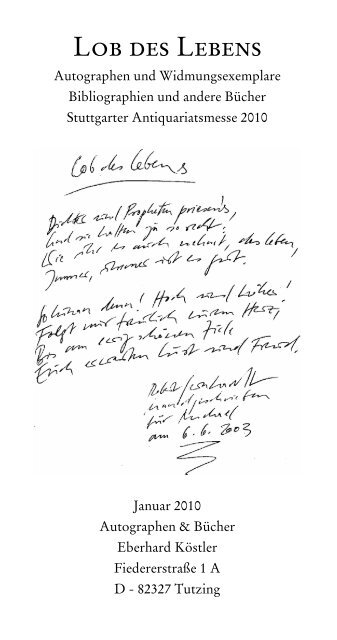 LOB DES LEBENS
Autographen und Widmungsexemplare
Bibliographien und andere Bücher
Stuttgarter Antiquariatsmesse 2010
Lob des Lebens
Dichter und Propheten priesen's,
und sie hatten ja so recht:
Wie ihr es auch nehmt, das Leben,
Immer, immer ist es gut.
So kommen denn! Hoch und höher!
Folgt mir freudig eurem Herz,
Bis am ewig schönen Ziele
Euch erwarten Lust und Freud.
Robert Gernhardt
handgeschrieben
für Michael
am 6.6.2003
Januar 2010
Autographen & Bücher
Eberhard Köstler
Fiedererstraße 1 A
D - 82327 Tutzing